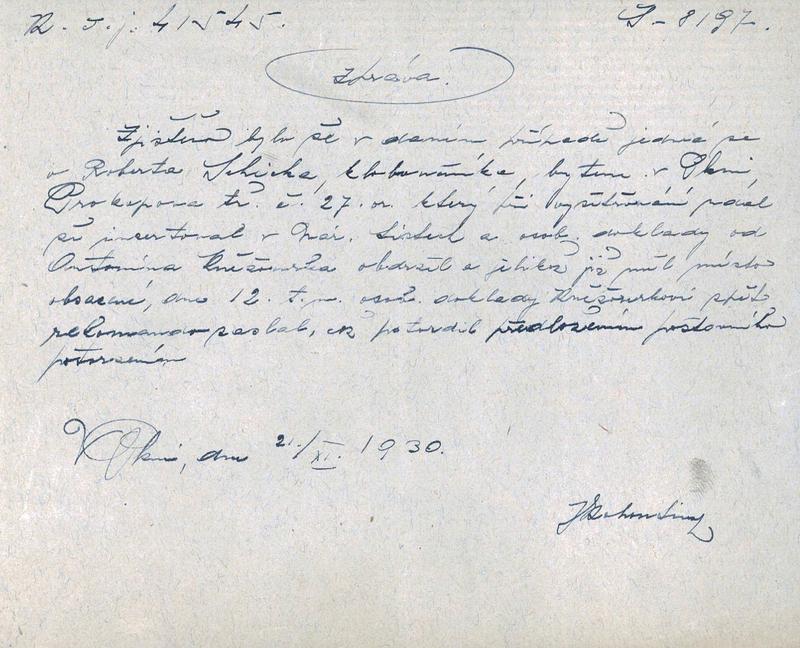 R. d. j. 41545. S-8197.
Zpráva.
Zjištěno bylo že v daném případě jedná se
o Roberta Schicka, kloboučníka, bytem v Plzni,
Prokopova tř. č. 27. n. který při vyšetřování udal
že insertoval v Nár. Listech a osob. doklady od
Antonína obdržel a jelikož již měl místo
obsazené, dne 12. t.m. osob. doklady zpět
rekomando zaslal, což potvrdil předložením poštovního
potvrzením
V Plzni, dne 21./XI. 1930.